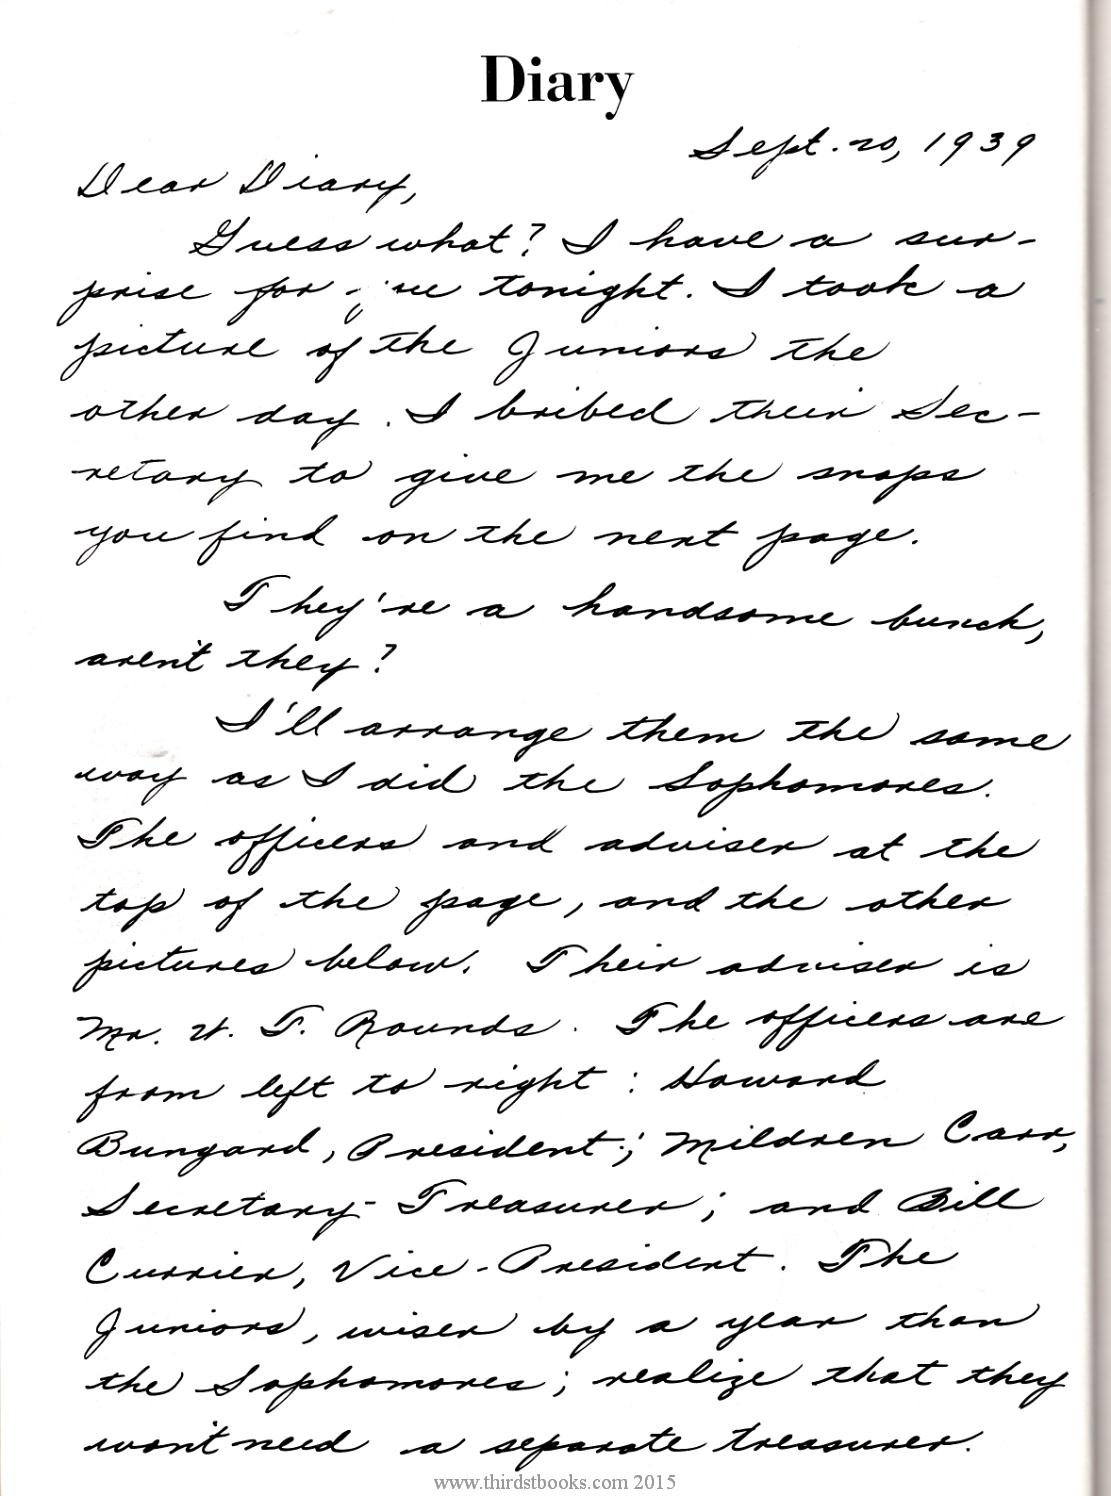 Diary
Sept. 20, 1939
Dear Diary,
Guess what? I have a sur-
prise for you tonight. I took a
picture of the Juniors the
other day. I bribed their Sec-
retary to give me the snaps
you find on the next page.
They're a handsome bunch,
aren't they?
I'll arrange them the same
way as I did the Sophomores.
The officers and adviser at the
top of the page, and the other
pictures below. Their adviser is
Mr. W. T. Rounds. The officers are
from left to right: Howard
Bungard, President; Mildren Carr,
Secretary-Treasurer; and Bill
Currier, Vice-President. The
Juniors, wiser by a year than
the Sophomores; realize that they
won't need a separate treasurer.
www.thirdstbooks.com 2015